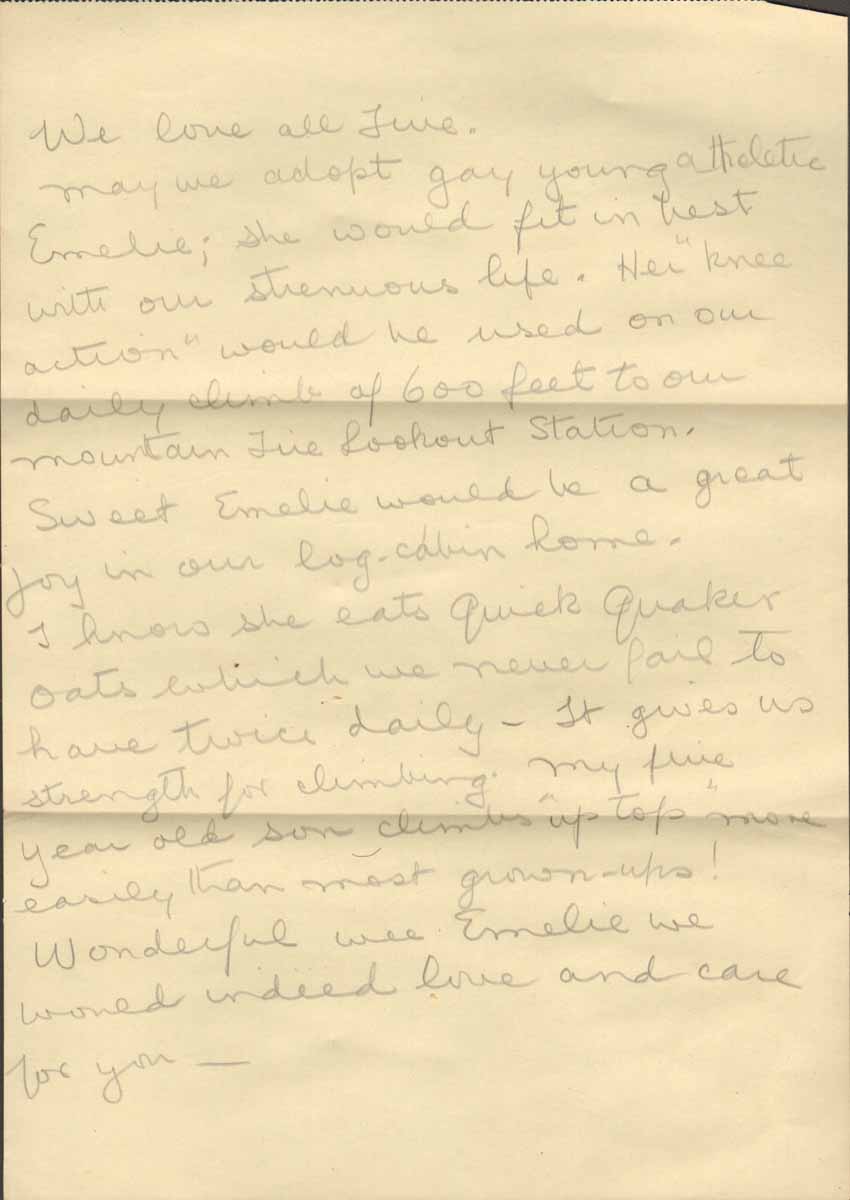 We love all Five.
may we adopt gay young athletic
Emelie; she would fit in best
with our strenuous life. Her "knee
action" would be used on our
daily climb of 600 feet to our
mountain Fire Lookout Station.
Sweet Emelie would be a great
joy in our log-cabin home.
I know she eats Quick Quaker
Oats which we never fail to
have twice daily - It gives us
strength for climbing. My five
year old son climbs "up top" more
easily than most grown-ups!
Wonderful wee Emelie we
would indeed love and care
for you —